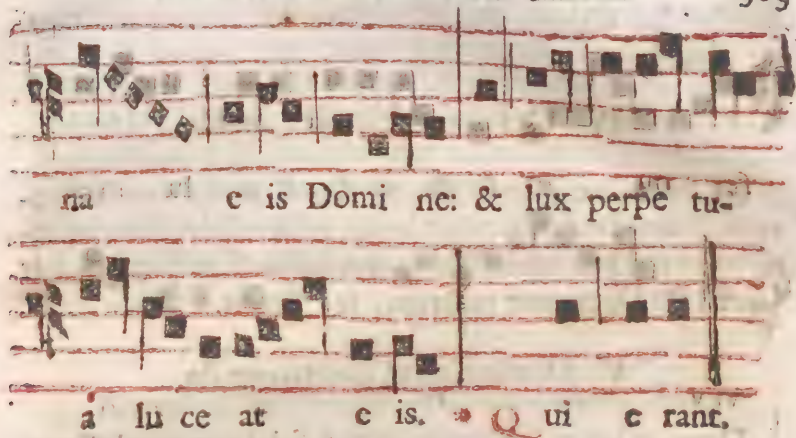 na e is Domi ne: & lux perpe tu-
a lu ce at e is. * Q ui e rant.